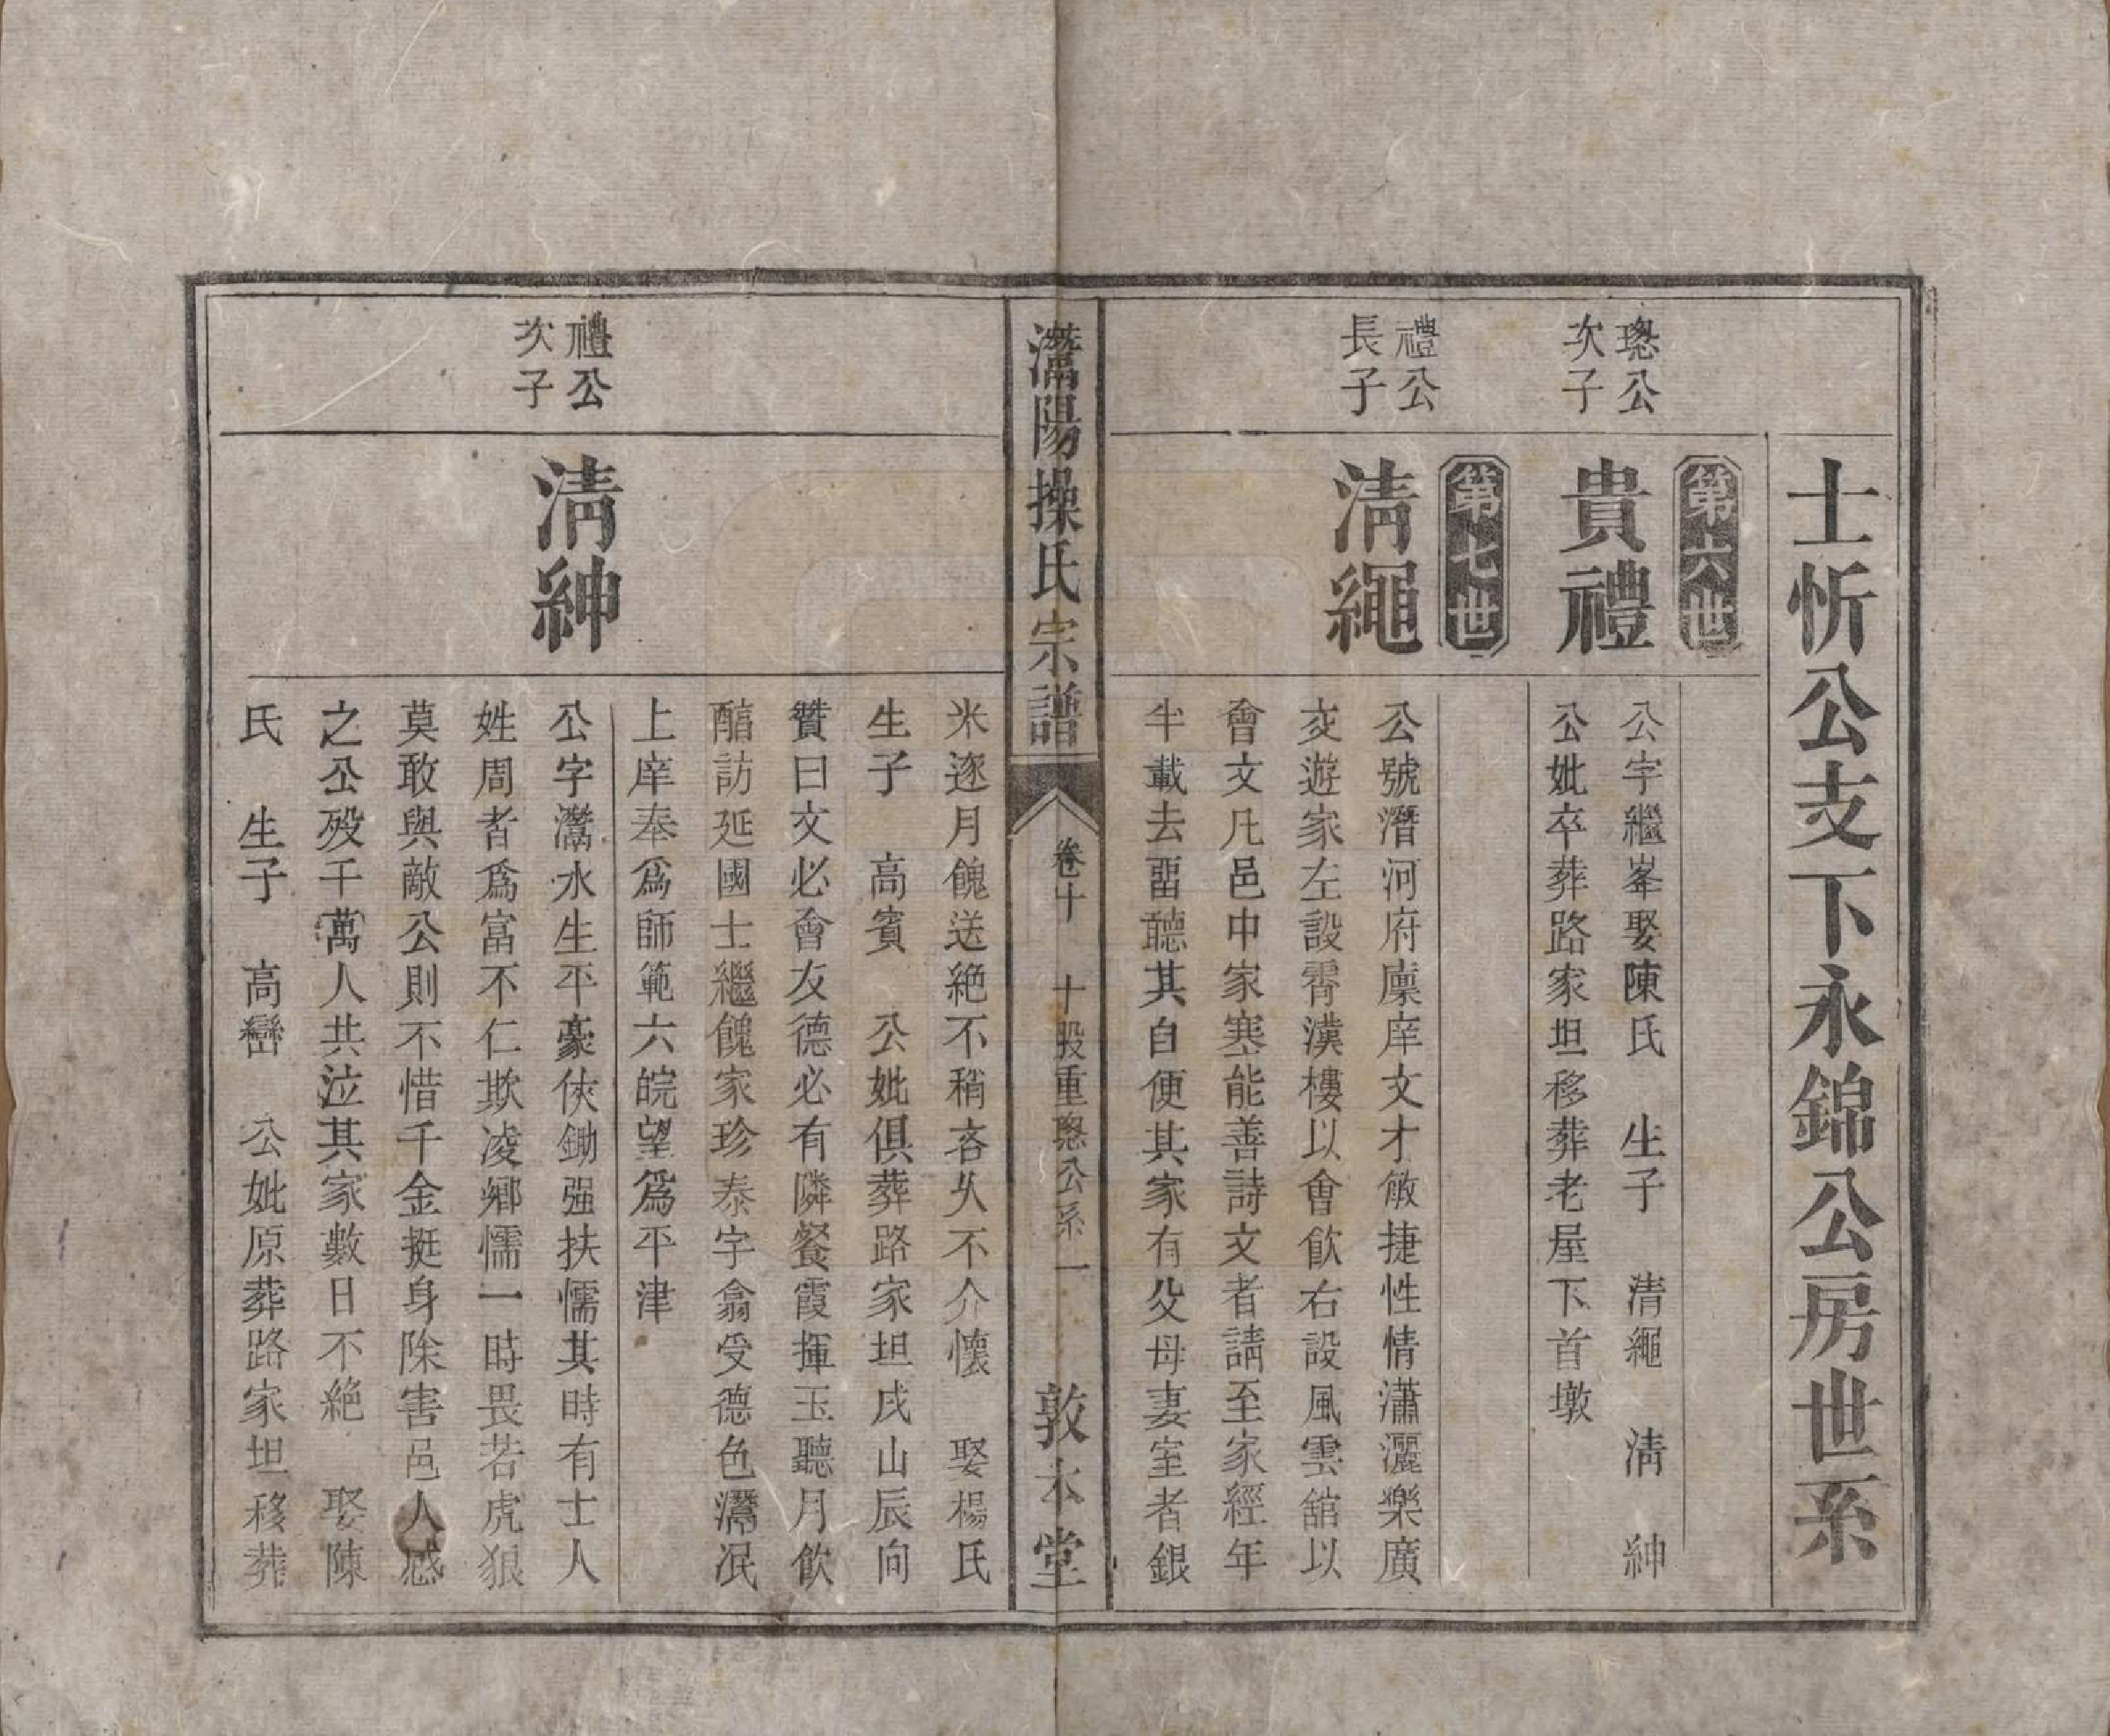 士忻公支下永錦公房世系
第六世
璁公
次子
貴禮
公字繼峯娶陳氏　生子　清繩　清　紳
公妣卒葬路家坦移葬老屋下首墩
第七世
禮公
長子
清繩
公號潛河府廩庠文才敏捷性情瀟灑樂廣
交遊家左設霄漢樓以會飲右設風雲舘以
會文凡邑中家塞能善詩文者請至家經年
半載去畱聽其自便其家有父母妻室者銀
陽操氏宗譜
卷十　十股重璁公系　一
敦本堂
米逐月餽送絶不稍吝久不介懷　娶楊氏
生子　高賓　公妣俱葬路家坦戌山辰向
贊曰文必會友德必有隣餐霞揮玉聽月飲
醕訪延國士繼餽家珍泰宇翕受德色潛泯
上庠奉爲師範六皖望爲平津
禮公
次子
清紳
公字灊水生平豪俠鋤强扶懦其時有士人
姓周者爲富不仁欺凌鄉懦一時畏若虎狼
莫敢與敵公則不惜千金挺身除害邑人感
之公歿千萬人共泣其家數日不絶　娶陳
氏　生子　高巒　公妣原葬路家坦移葬